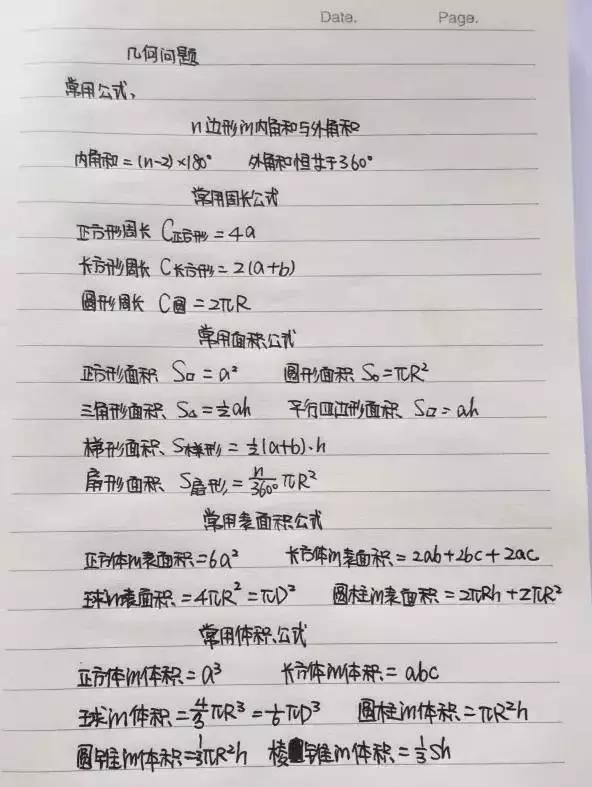 Date. Page.
几何问题
常用公式、
n边形的内角和与外角和
内角和=(n-2)×180° 外角和恒等于360°
常用周长公式
正方形周长 C正方形=4a
长方形周长 C长方形=2(a+b)
圆形周长 C圆=2πR
常用面积公式
正方形面积 S□=a² 圆形面积 S○=πR²
三角形面积 S△=½ah 平行四边形面积 S▱=ah
梯形面积 S梯形=½(a+b)·h
扇形面积 S扇形=n/360° πR²
常用表面积公式
正方体的表面积=6a² 长方体的表面积=2ab+2bc+2ac
球的表面积=4πR²=πD² 圆柱的表面积=2πRh+2πR²
常用体积公式
正方体的体积=a³ 长方体的体积=abc
球的体积=4/3πR³=1/6πD³ 圆柱的体积=πR²h
圆锥的体积=1/3πR²h 棱锥的体积=1/3Sh